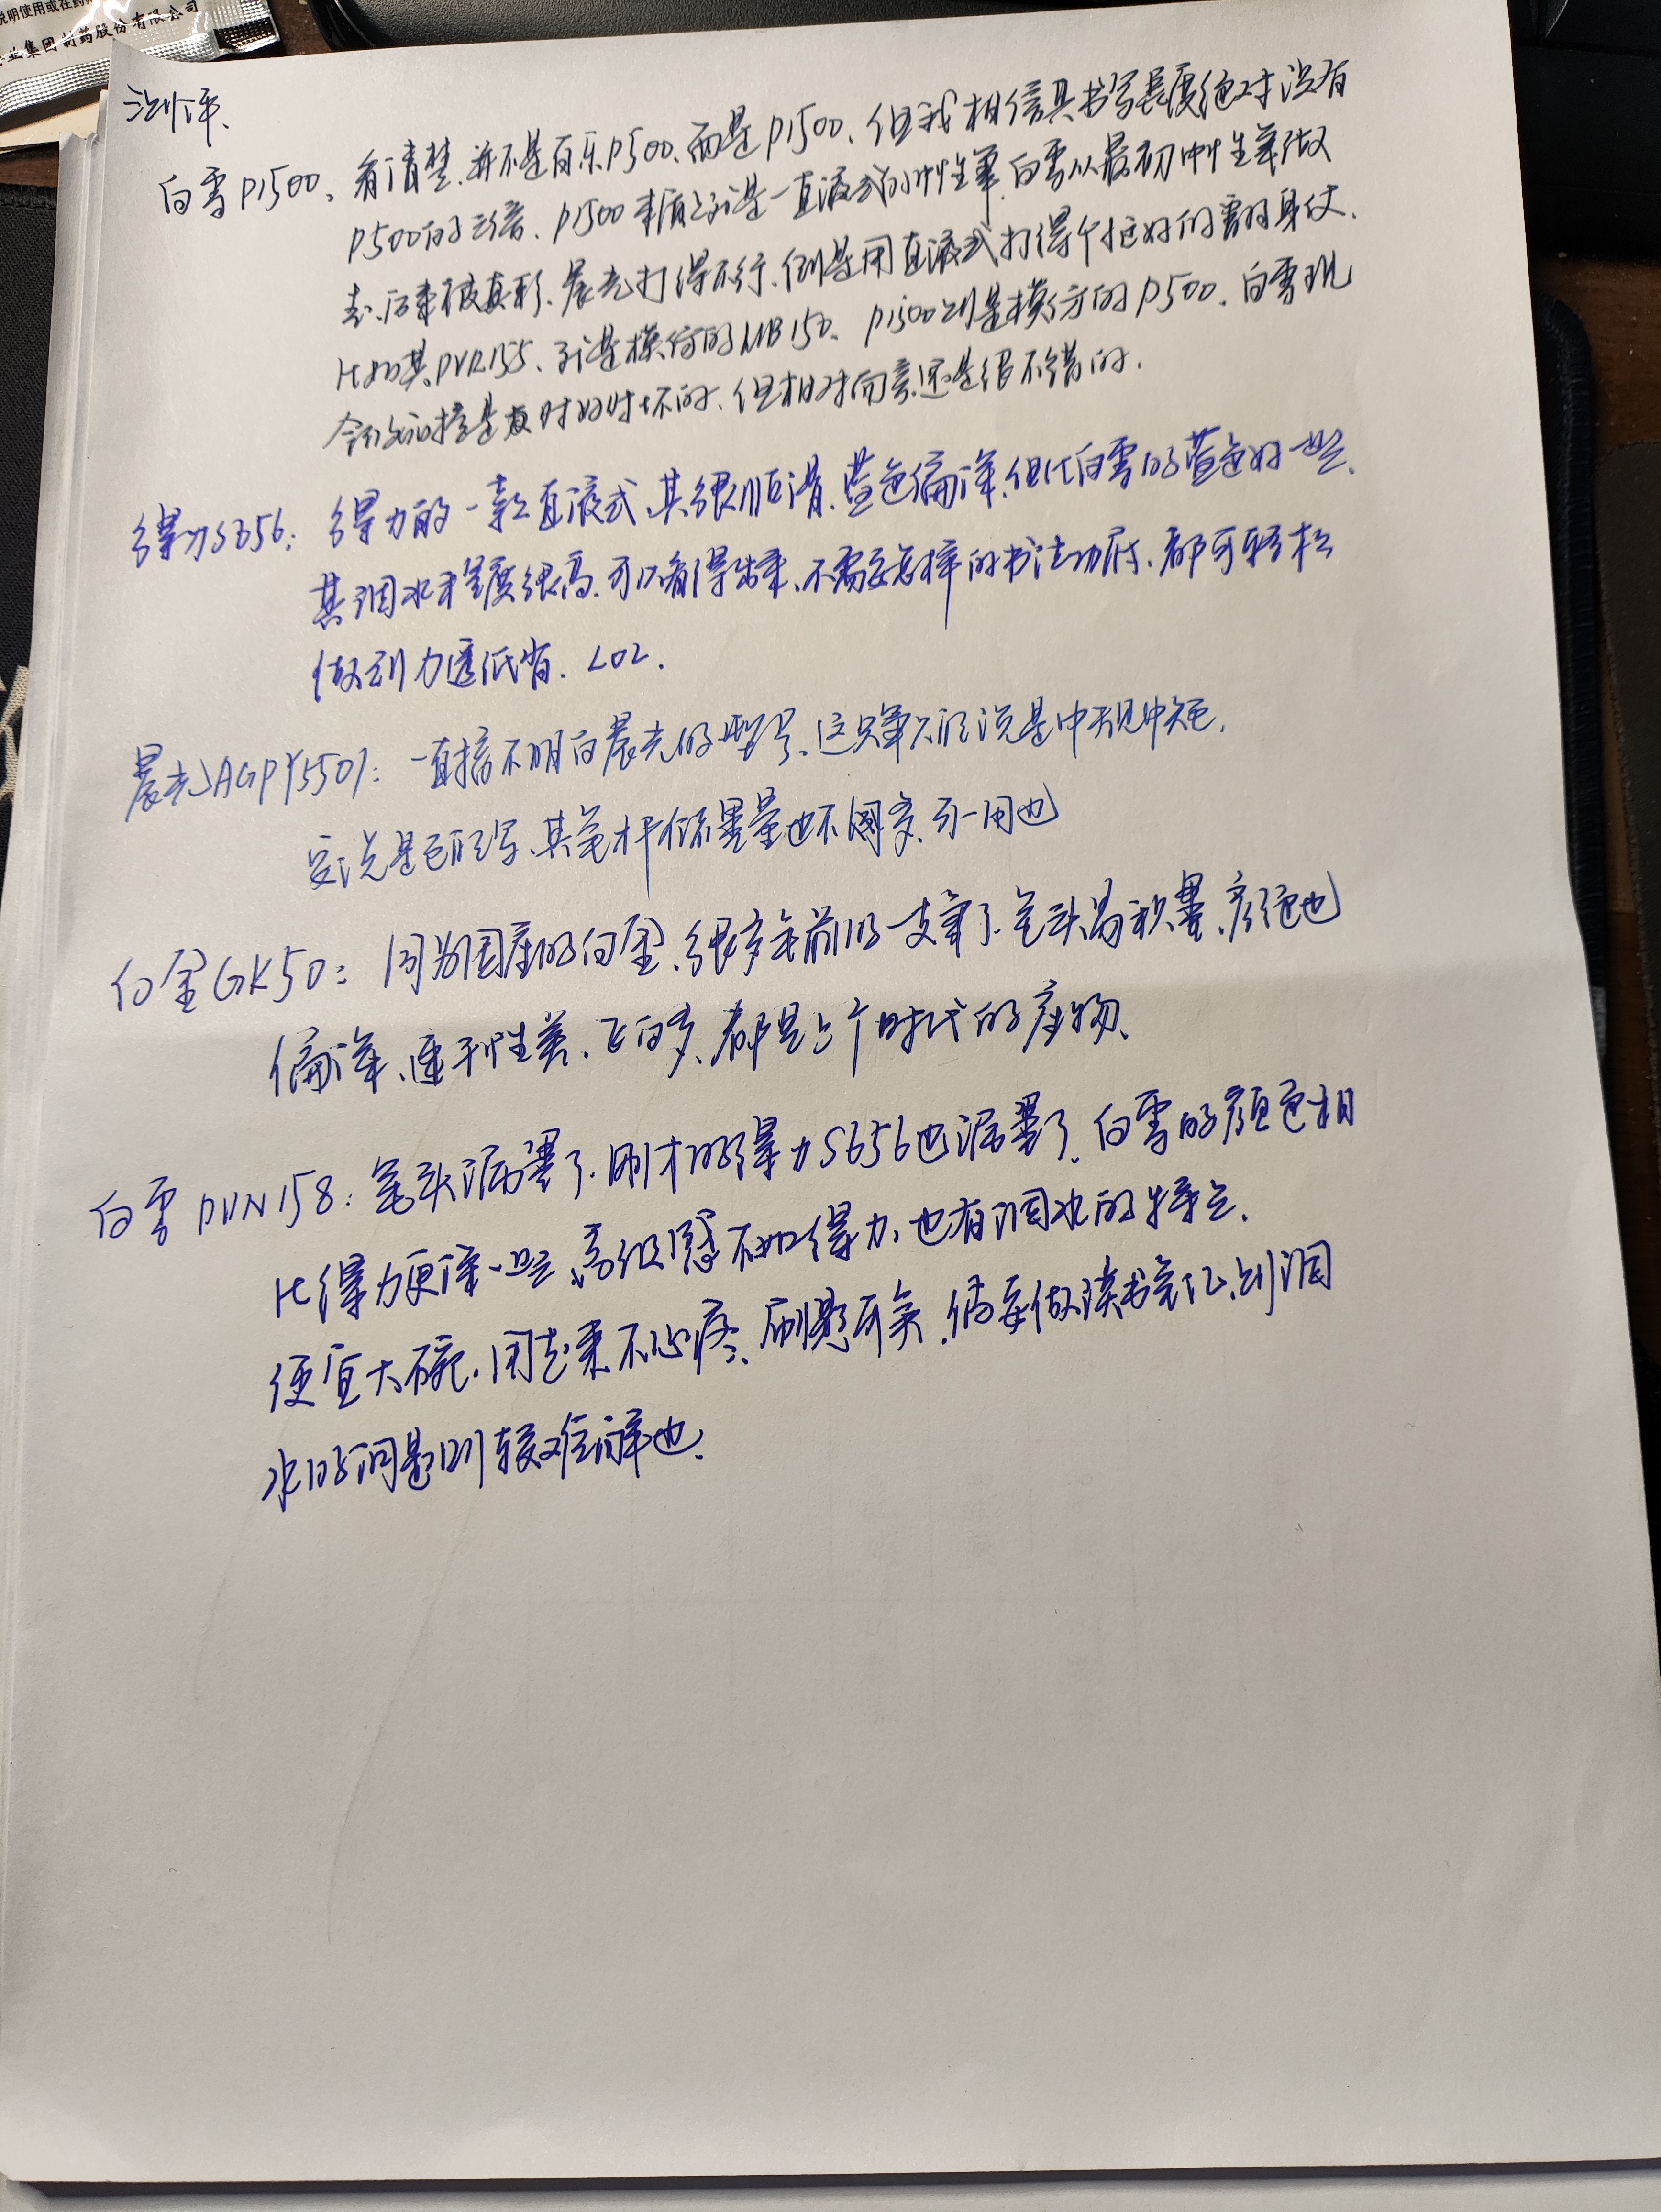 说明使用或在药
业集团制药股份有限公司
测评、
白雪P1500、看清楚、并不是百乐P500、而是P1500、但我相信其书写长度绝对没有
P500的三倍、P1500本质上算是一直液式的中性笔、白雪以最初中性笔做
起、后来被真彩、晨光打得不行、倒是用直液式打得个挺好的翻身仗、
比如其PVR155、算是模仿的UB150、P1500则是模仿的P500、白雪现
今的品控是有时好时坏的、但相对而言还是很不错的.
得力S656: 得力的一款直液式、其很顺滑、蓝色偏深、但比白雪的蓝色好一些、
其洇水程度很高、可以看得出来、不需要怎样的书法功底、都可轻松
做到力透纸背、LOL.
晨光AGPY5501: 一直搞不明白晨光的型号、这只笔只能说是中规中矩、
要说是也能写、其笔杆储墨量也不多、可一用也
白金GK50: 因为国产的白金、很多年前的一支笔了、笔头易积墨、颜色也
偏深、连利性差、飞白多、都是上个时代的产物、
白雪PVN158: 笔头漏墨了、刚才的得力S656也漏墨了、白雪的颜色相
比得力更深一些、高级感不如得力、也有洇水的特点、
便宜大碗、用起来不心疼、刷题可矣、倘要做读书笔记、则洇
水的问题则较难解也、